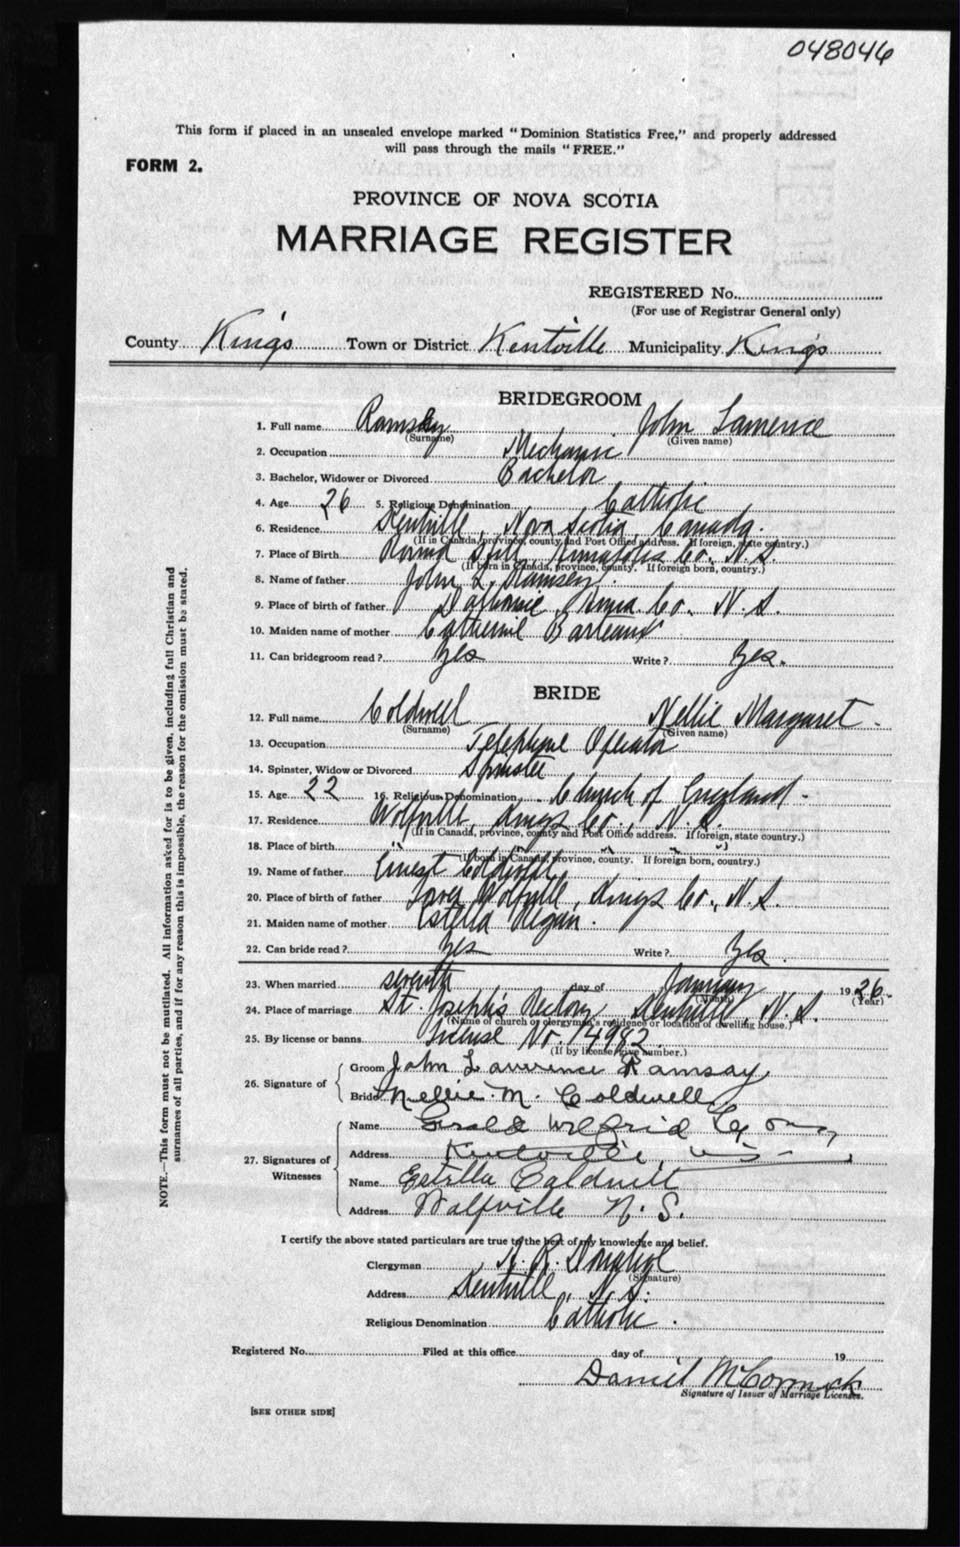 048046
This form if placed in an unsealed envelope marked "Dominion Statistics Free," and properly addressed
will pass through the mails "FREE."
FORM 2.
PROVINCE OF NOVA SCOTIA
MARRIAGE REGISTER
REGISTERED No.
(For use of Registrar General only)
County Kings Town or District Kentville Municipality Kings
BRIDEGROOM
1. Full name Ramsay John Lawrence
(Surname) (Given name)
2. Occupation Mechanic
3. Bachelor, Widower or Divorced Bachelor
4. Age 26 5. Religious Denomination Catholic
6. Residence Kentville, Nova Scotia, Canada.
(If in Canada, province, county and Post Office address. If foreign, state country.)
7. Place of Birth Round Hill, Annapolis Co., N.S.
(If born in Canada, province, county. If foreign born, country.)
8. Name of father John L. Ramsey.
9. Place of birth of father Dalhousie, Anna. Co. N.S.
10. Maiden name of mother Catherine Barteaux
11. Can bridegroom read? Yes Write? Yes.
BRIDE
12. Full name Coldwell Nellie Margaret.
(Surname) (Given name)
13. Occupation Telephone Operator
14. Spinster, Widow or Divorced Spinster
15. Age 22 16. Religious Denomination Church of England.
17. Residence Wolfville, Kings Co., N.S.
(If in Canada, province, county and Post Office address. If foreign, state country.)
18. Place of birth " " " "
(If born in Canada, province, county. If foreign born, country.)
19. Name of father Ernest Coldwell
20. Place of birth of father Wolfville, Kings Co., N.S.
21. Maiden name of mother Estella Regan.
22. Can bride read? Yes Write? Yes.
23. When married seventh day of January 1926.
(Month) (Year)
24. Place of marriage St. Joseph's Rectory Kentville, N.S.
(Name of church or clergyman's residence or location of dwelling house.)
25. By license or banns License No. 14982.
(If by license give number.)
26. Signature of
Groom John Lawrence Ramsay
Bride Nellie M. Coldwell
27. Signatures of Witnesses
Name Gerald Wilfrid
Address Kentville, N.S.
Name Estella Caldwell
Address Wolfville N.S.
I certify the above stated particulars are true to the best of my knowledge and belief.
Clergyman R.
(Signature)
Address Kentville, N.S.
Religious Denomination Catholic.
Registered No. Filed at this office day of 19
Daniel McCormick
Signature of Issuer of Marriage Licenses.
[SEE OTHER SIDE]
NOTE.—This form must not be mutilated. All information asked for is to be given, including full Christian and
surnames of all parties, and if for any reason this is impossible, the reason for the omission must be stated.